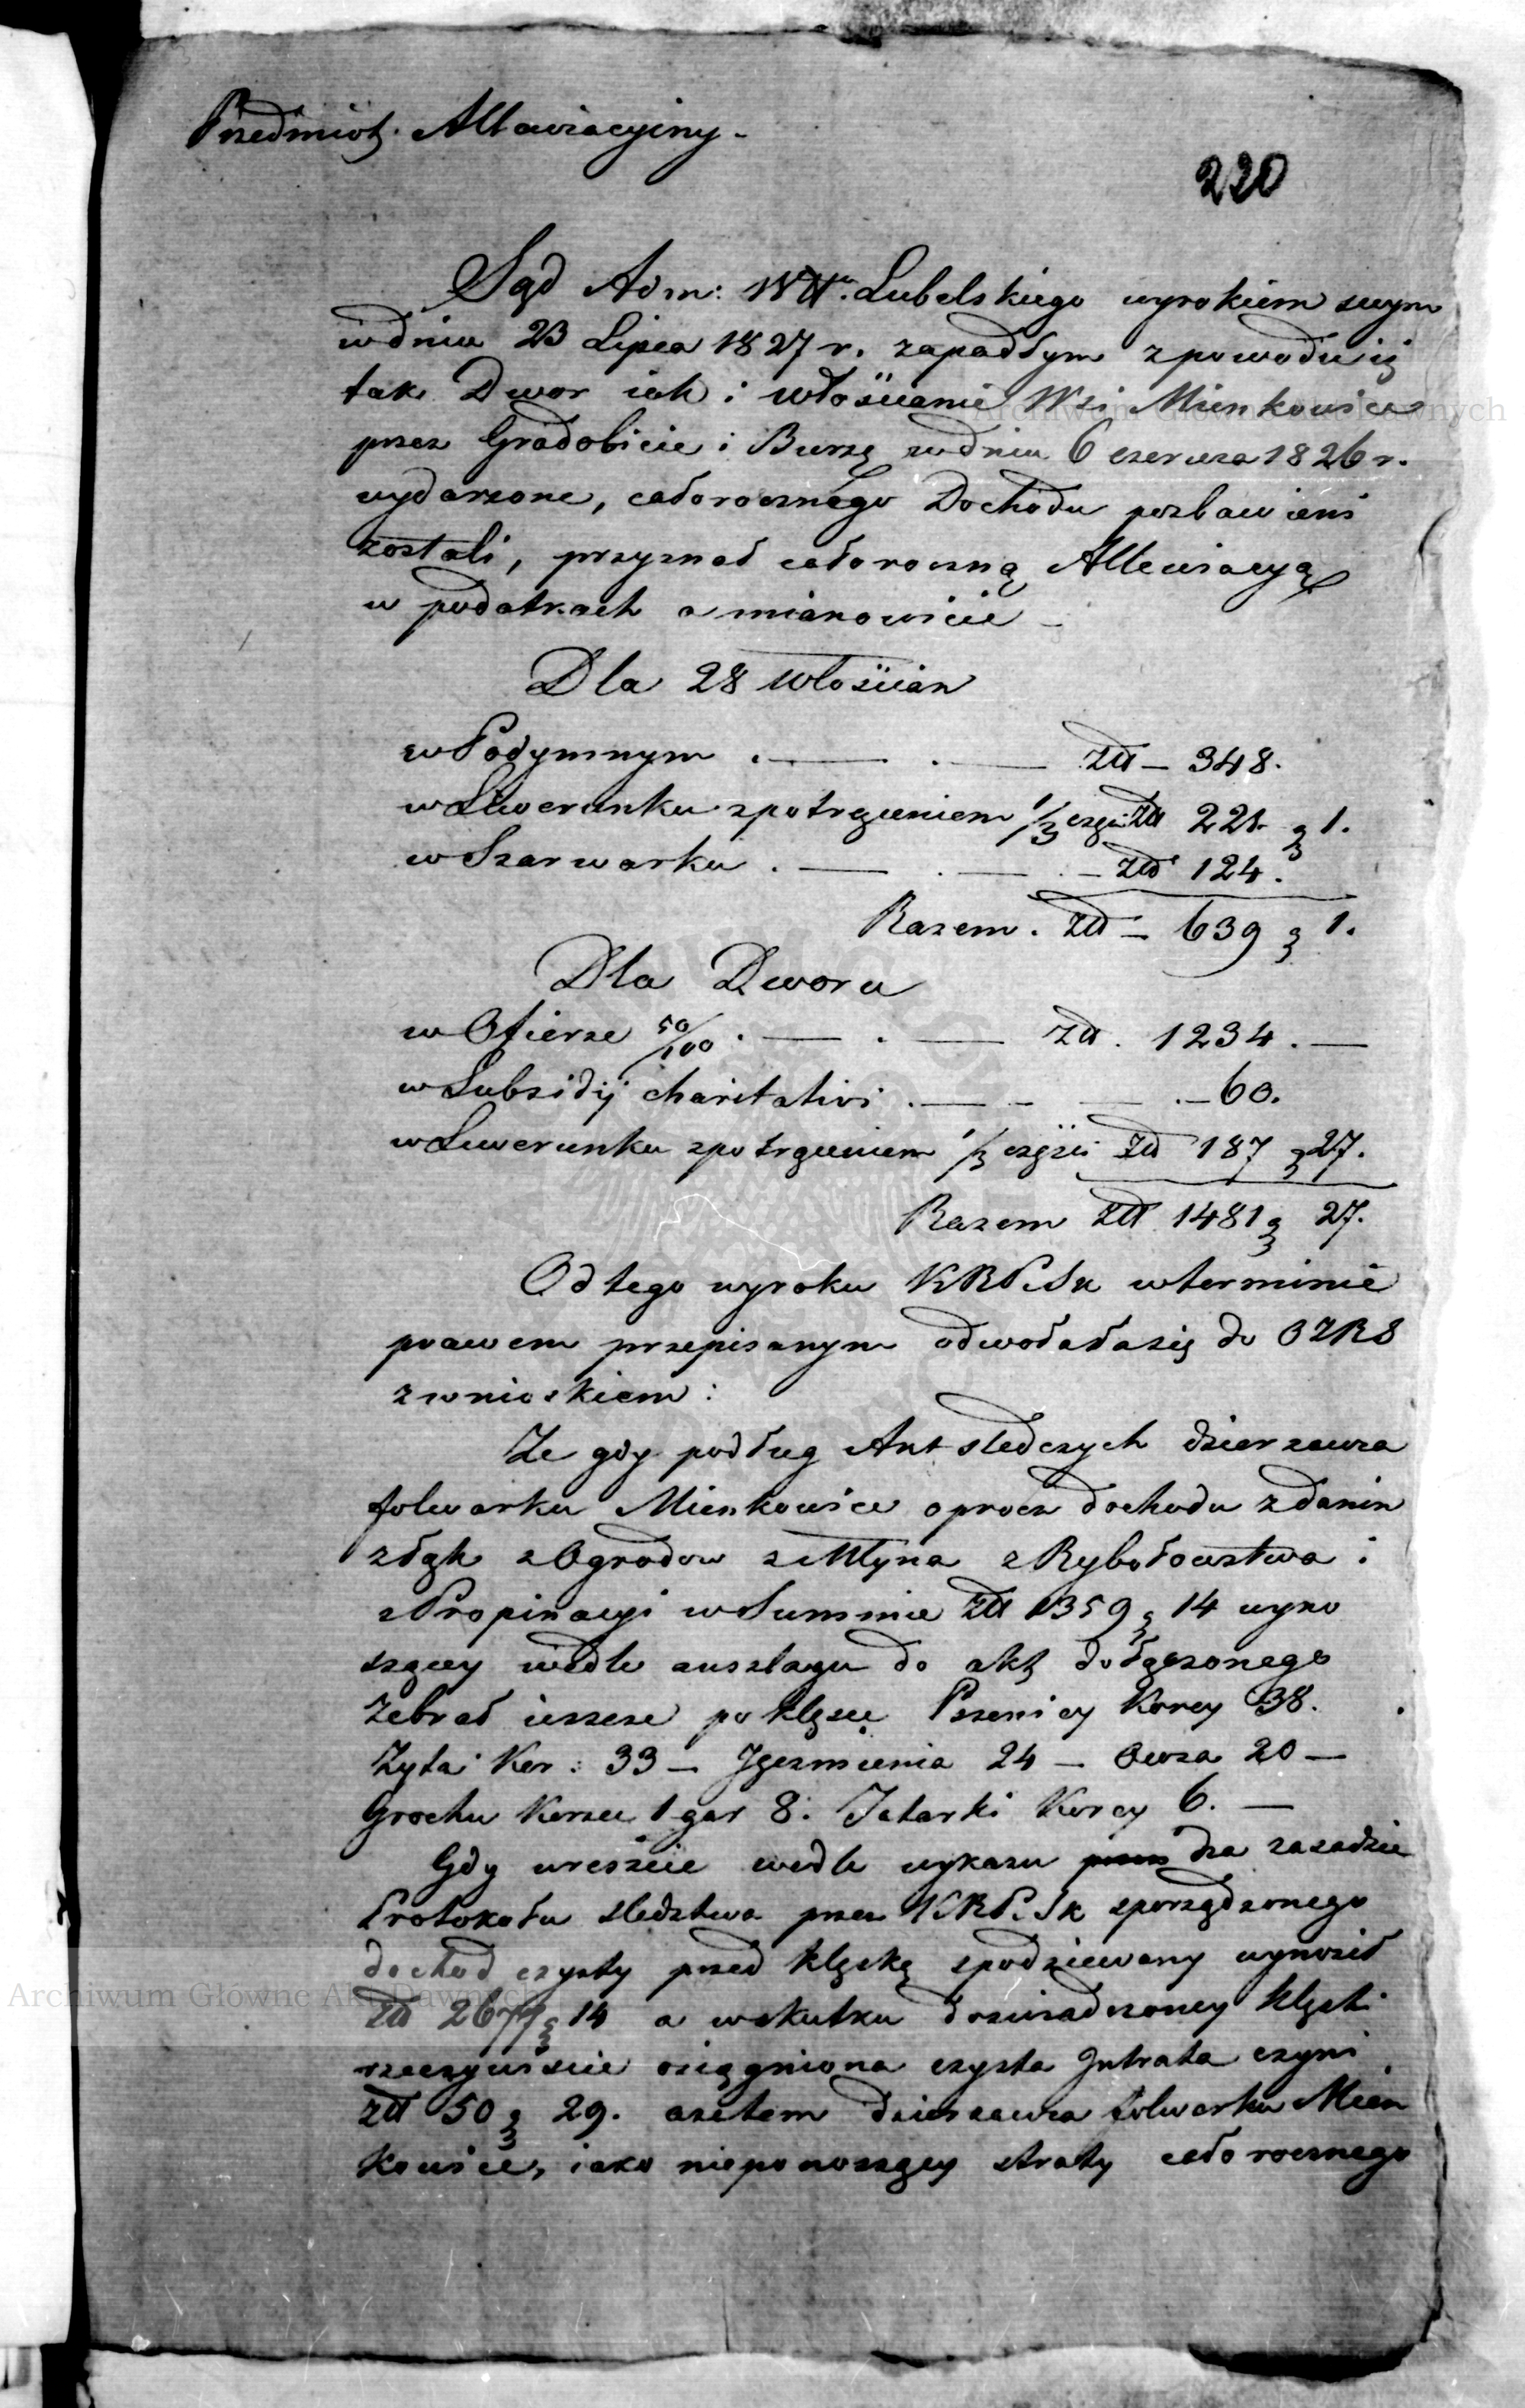 Przedmiot Allewiacyiny -
220
Sąd Adm: Wtt. Lubelskiego wyrokiem swym
w dniu 23 Lipca 1827 r. zapadłym z powodu iż
tak Dwor iak i włościanie Wsi Mienkowice
przez Gradobicie i Burzę w dniu 6 czerwca 1826 r.
wydarzone, całorocznego Dochodu pozbawieni
zostali, przyznał całoroczną Allewiacyą
w podatkach a mianowicie -
Dla 28 włościan
w Podymnym . — . — złł - 348.
w Liwerunku z potrąceniem 1/3 częsci złł 221 g 1.
w Szarwarku . — . — . - złł 124.
Razem . złł - 639 g 1.
Dla Dworu
w Ofierze 50/100 . — . — złł . 1234 . —
w Subsidij charitativi . — - — . - 60.
w Liwerunku z potrąceniem 1/3 częsci złł 187 g 27.
Razem złł 1481 g 27.
Od tego wyroku KRPiSk w terminie
prawem przepisanym odwołała się do
z wnioskiem :
Ze gdy podług Akt sledczych dzierzawca
folwarku Mienkowice oprocz dochodu z danin
z łąk z Ogrodow z Młyna z Rybołowstwa i
z Propinacyi w Summie złł 1359 g 14 wyno
szącey wedle anszlagu do akt dołączonego
Zebrał ieszcze po klęsce Pszenicy Korcy 38.
Żyta Kor: 33 - Jęczmienia 24 - Owsa 20 —
Grochu Korzec 1 gar 8. Tatarki Korcy 6. —
Gdy wreszcie wedle wykazu na zasadzie
Protokołu sledztwa przez KRPiSk sporządzonego
dochod czysty przed klęską spodziewany wynosił
złł 2677 g 14 a w skutku doswiadczoney klęski
rzeczywiscie osiągniona czysta Intrata czyni
złł 50 g 29. a zatem dzierzawca folwarku Mien
kowice, iako nieponoszący straty całorocznego
Archiwum Główne Akt Dawnych